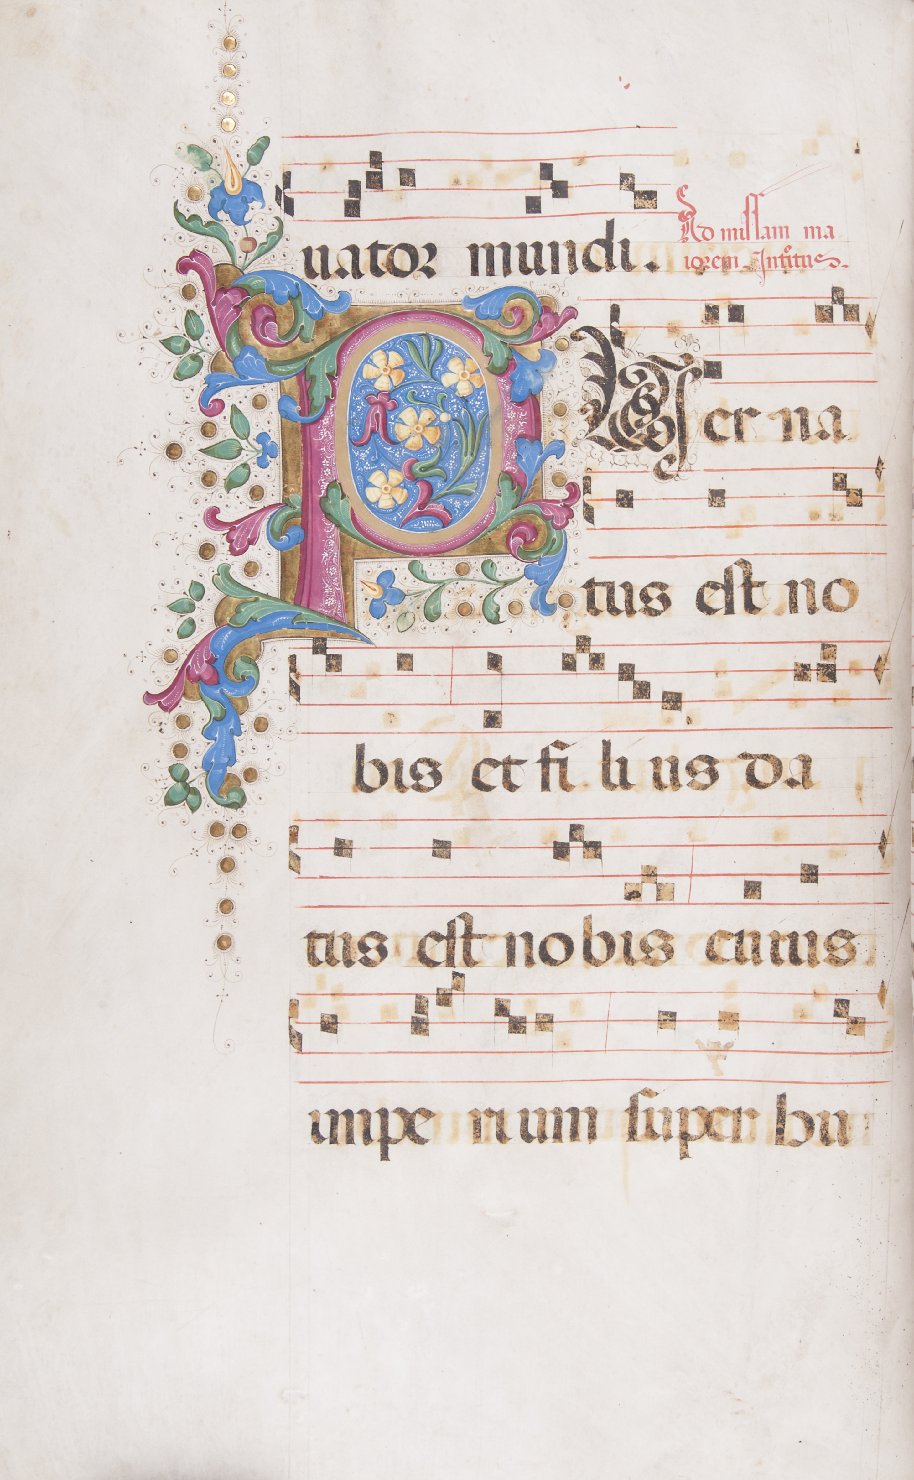 uator mundi.
Ad missam ma
iorem Introitus.
PUer na
tus est no
bis et fi li us da
tus est nobis cuius
impe rium super hu